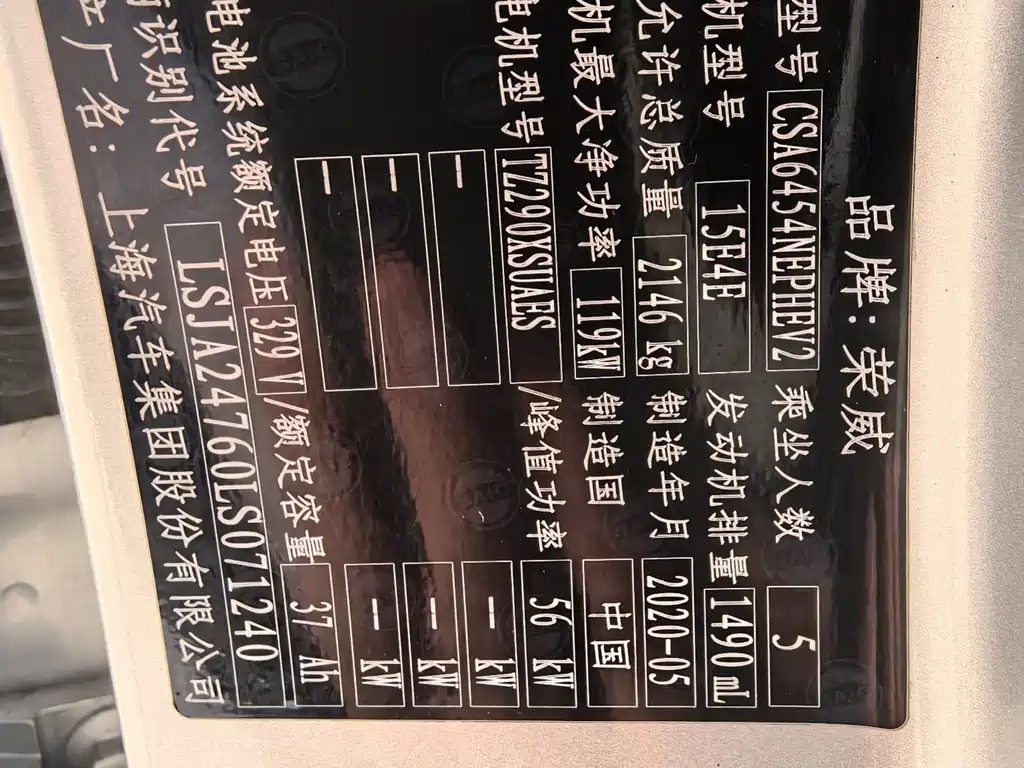 品牌: 荣威
型号 CSA6454NEPHEV2 乘坐人数 5
机型号 15E4E 发动机排量 1490 mL
允许总质量 2146 kg 制造年月 2020-05
机最大净功率 119kW 制造国 中国
电机型号 TZ290XSUAES /峰值功率 56 kW
— — kW
— — kW
— — kW
电池系统额定电压 329 V /额定容量 37 Ah
识别代号 LSJA24760LS071240
厂名: 上海汽车集团股份有限公司